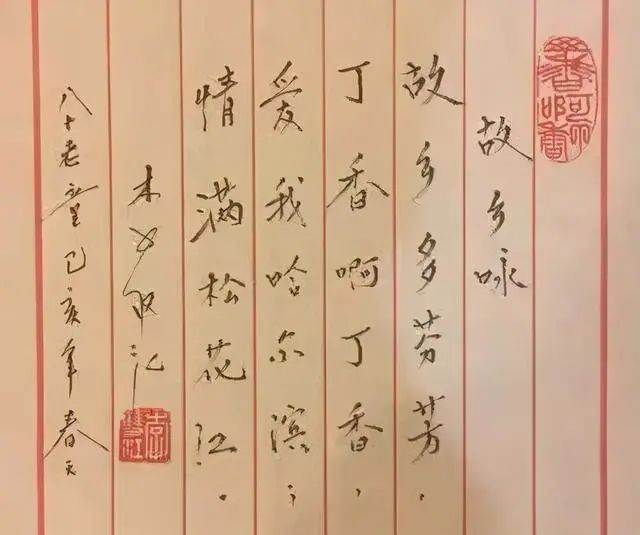 故乡咏
故乡多芬芳，
丁香啊丁香，
爱我哈尔滨，
情满松花江。
八十老童己亥年春天